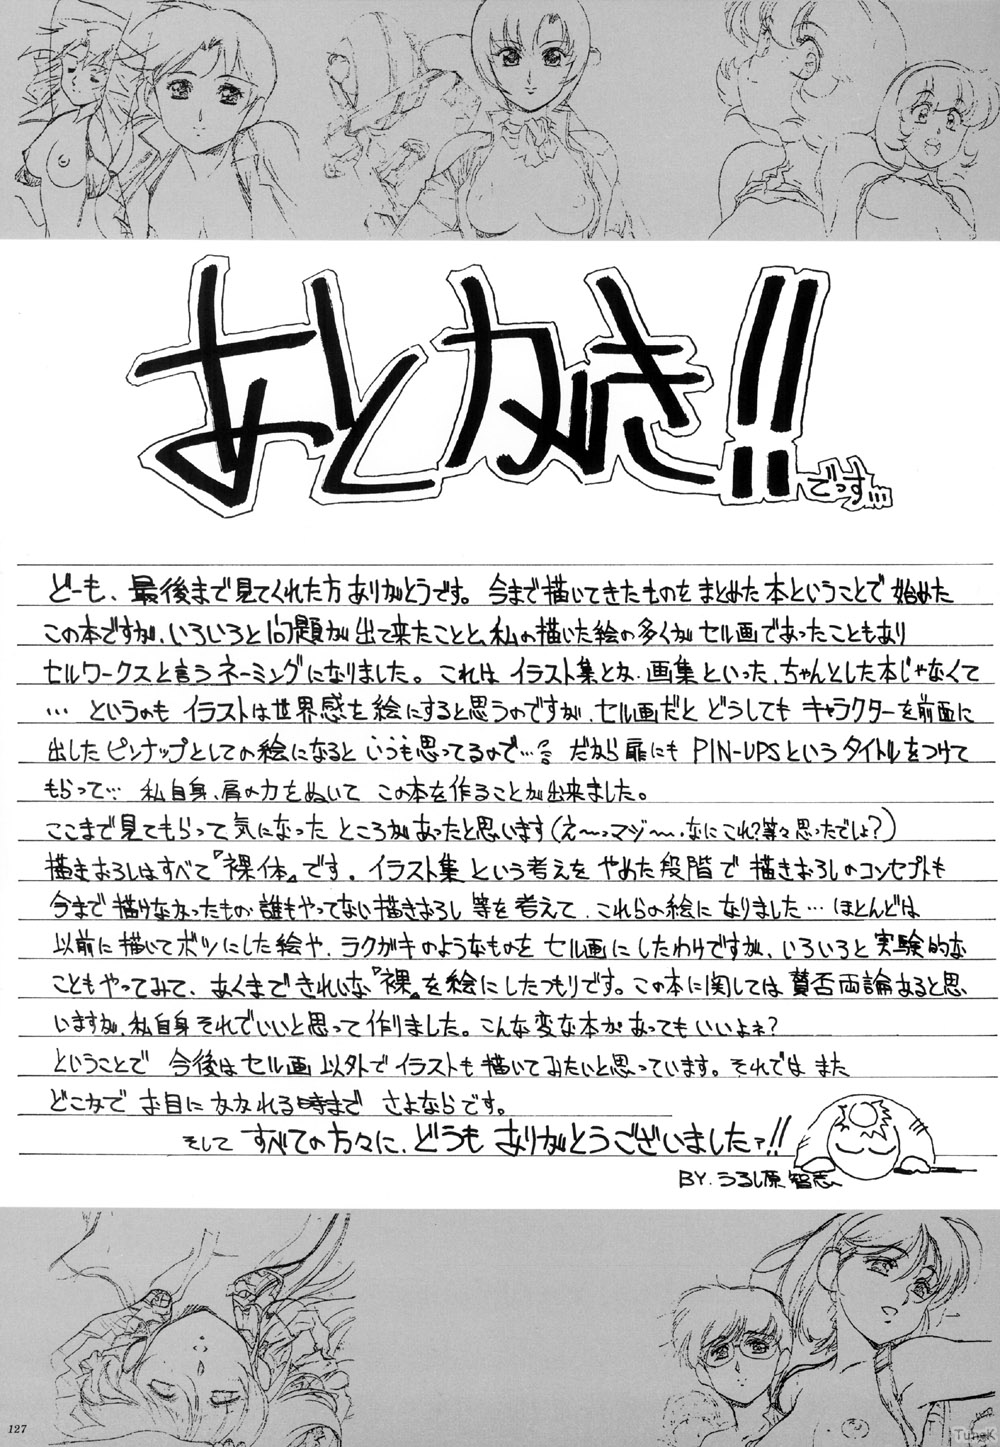 あとがき!!
でっす…
どーも、最後まで見てくれた方ありがとうです。今まで描いてきたものをまとめた本ということで始めた
この本ですが、いろいろと問題が出て来たことと、私の描いた絵の多くがセル画であったこともあり
セルワークスと言うネーミングになりました。これはイラスト集とか、画集といった、ちゃんとした本じゃなくて
…というのもイラストは世界感を絵にすると思うのですが、セル画だとどうしてもキャラクターを前面に
出したピンナップとしての絵になるといつも思ってるので…。だから扉にもPIN-UPSというタイトルをつけて
もらって… 私自身、肩の力をぬいてこの本を作ることが出来ました。
ここまで見てもらって気になったところがあったと思います(え〜っマジ〜、なにこれ?等々思ったでしょ?)
描きおろしはすべて『裸体』です。イラスト集という考えをやめた段階で描きおろしのコンセプトも
今まで描けなかったもの、誰もやってない描きおろし等を考えて、これらの絵になりました…ほとんどは
以前に描いてボツにした絵や、ラクガキのようなものをセル画にしたわけですが、いろいろと実験的な
こともやってみて、あくまできれいな『裸』を絵にしたつもりです。この本に関しては賛否両論あると思
いますが、私自身それでいいと思って作りました。こんな変な本があってもいいよネ?
ということで 今後はセル画以外でイラストも描いてみたいと思っています。それでは また
どこかで お目にかかれる時まで さよならです。
そして すべての方々に、どうも ありがとうございましたァ!!
BY.うるし原智志
127
TuneK